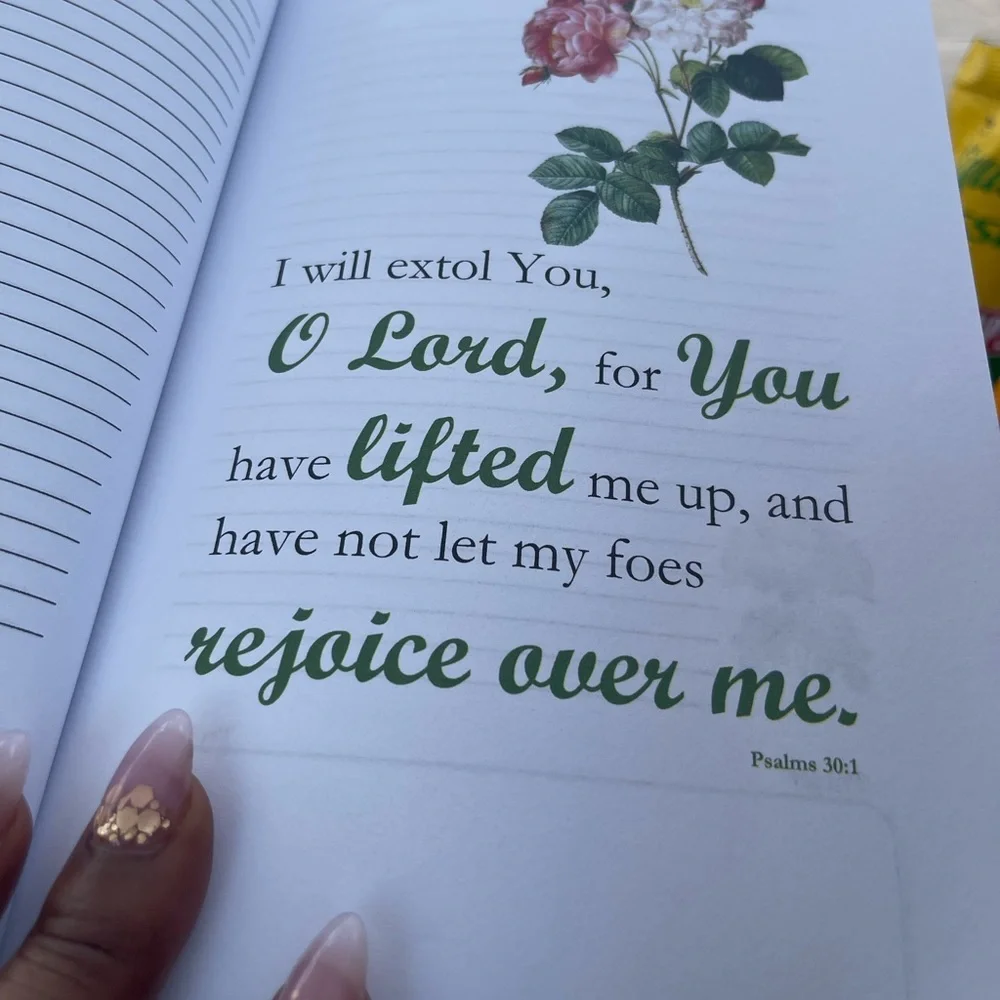 I will extol You,
O Lord, for You
have lifted me up, and
have not let my foes
rejoice over me.
Psalms 30:1